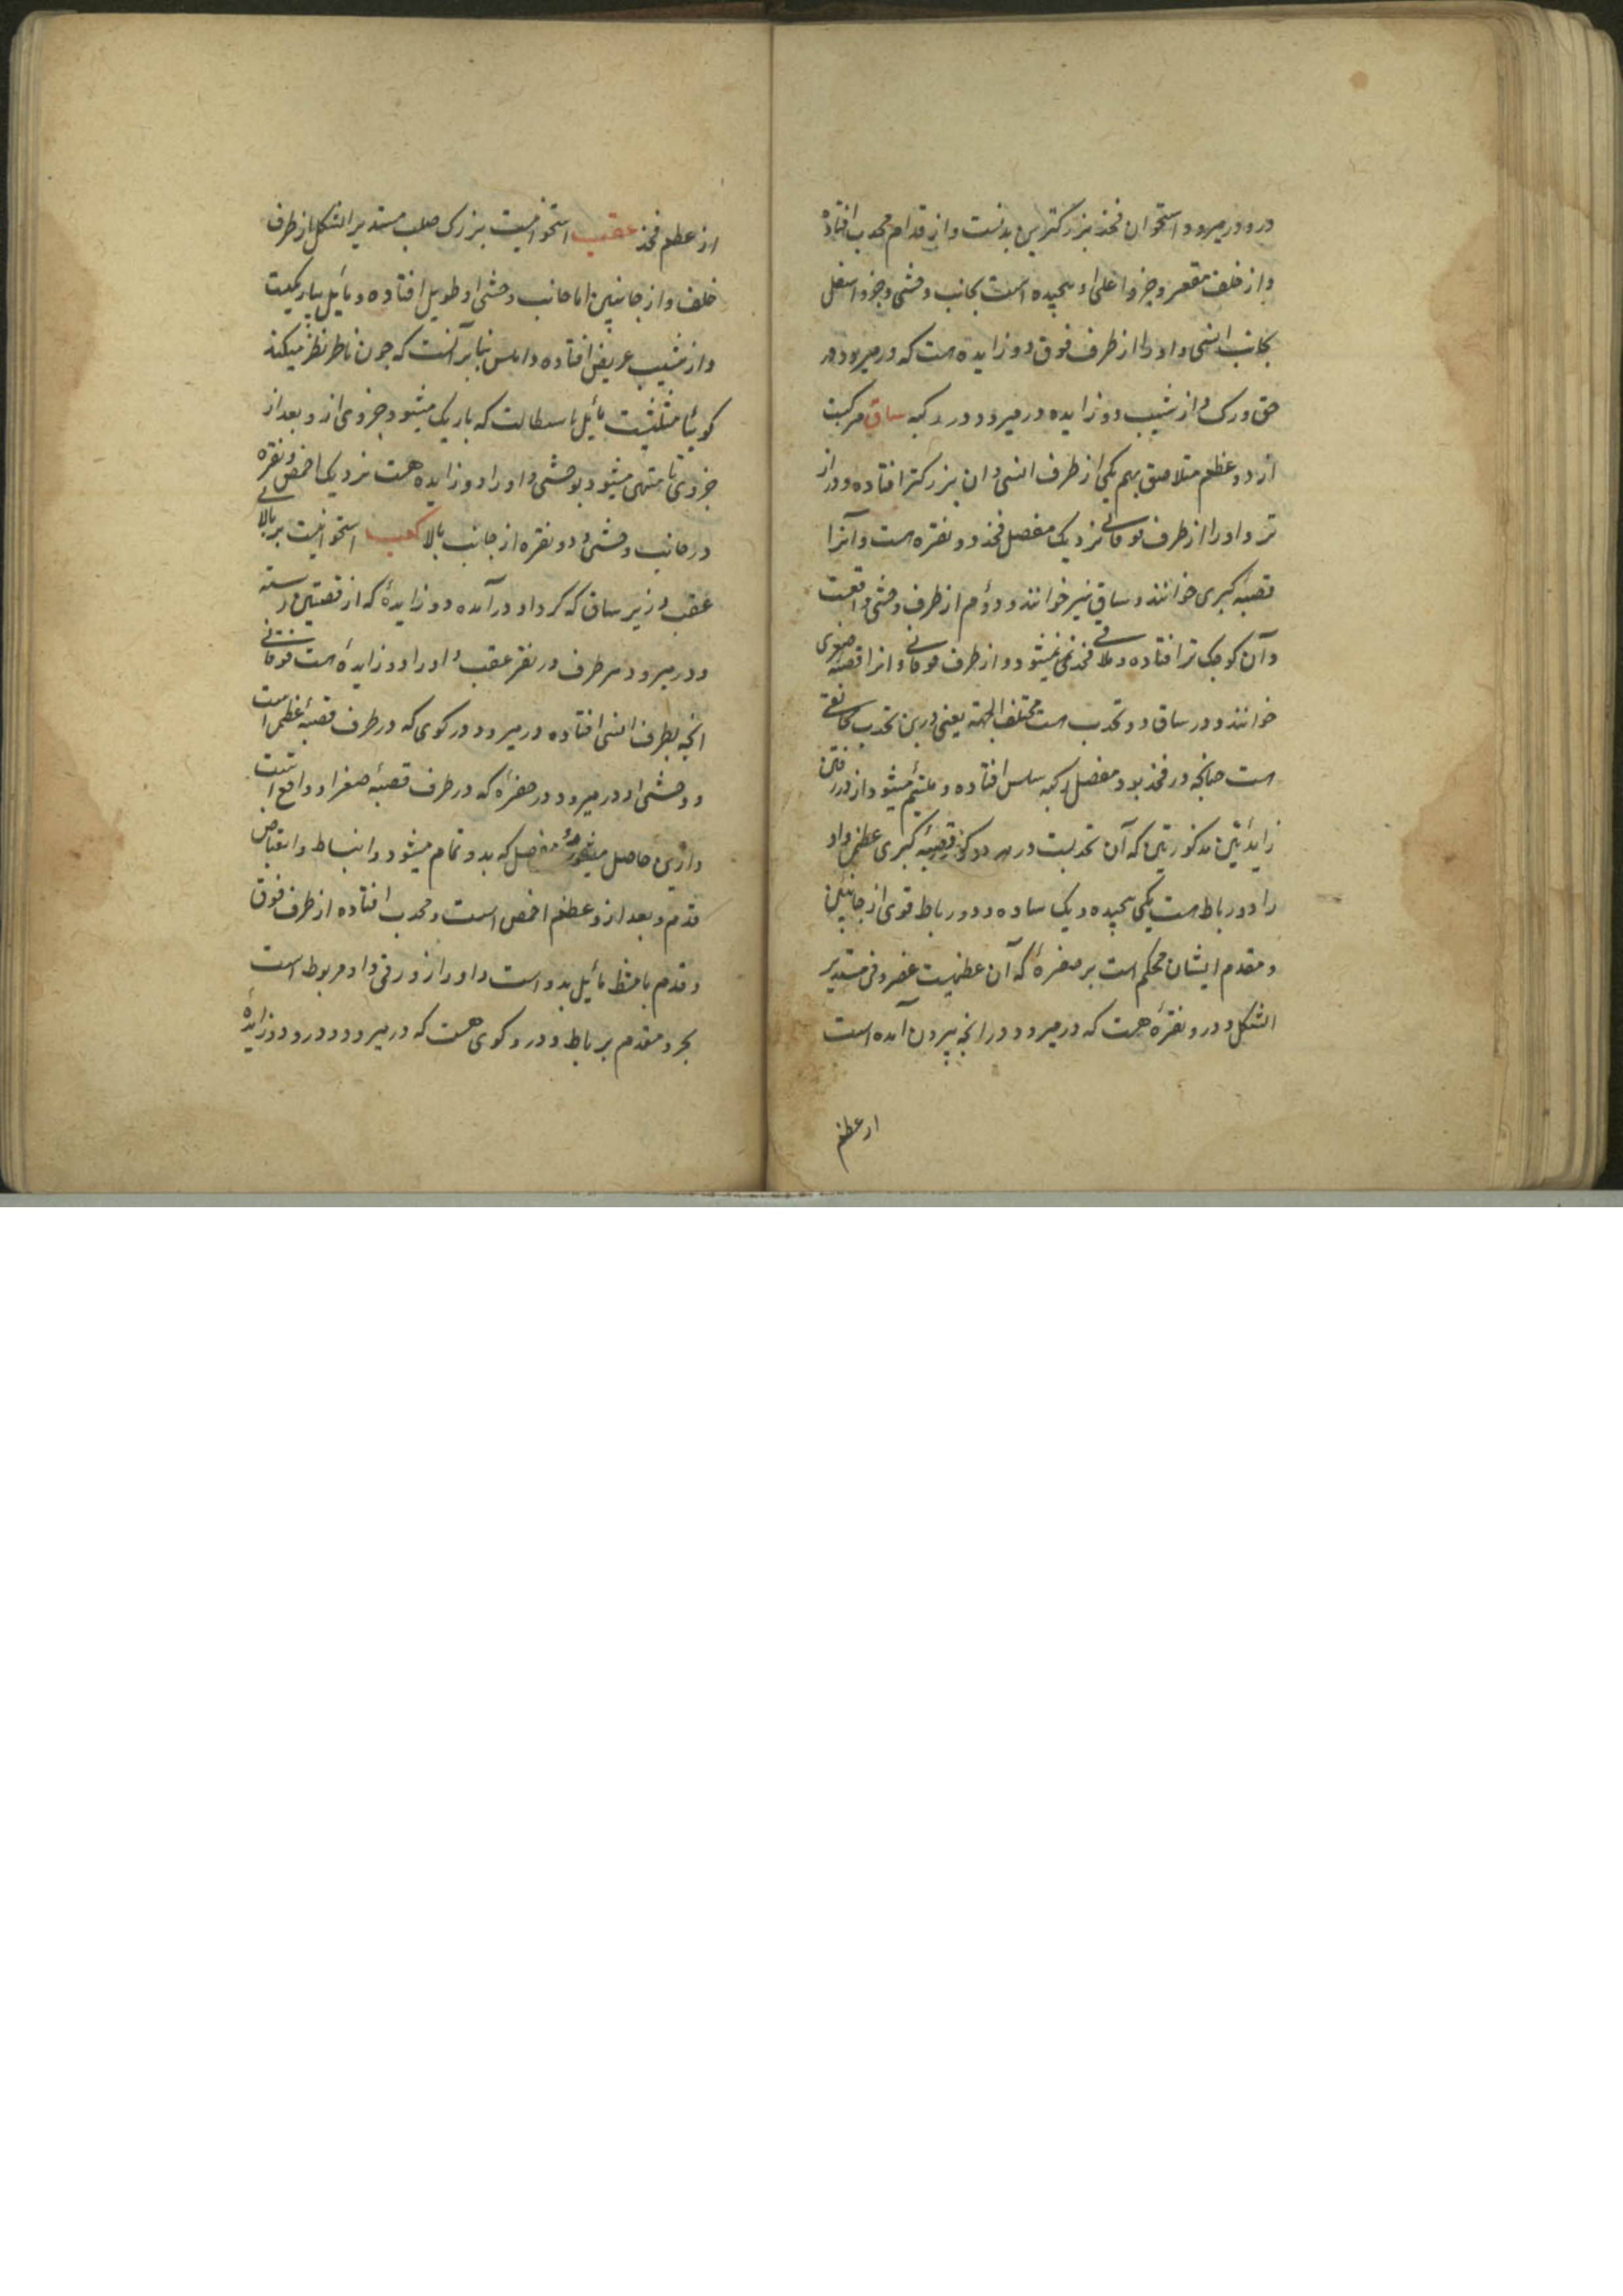 در و در میرود و استخوان فخذ بزرگترین بدنست و از قدام محدب افتاده
و از خلف مقعر و جزو اعلی او پیچیده است بجانب وحشی و جزو اسفل
بجانب انسی و او را از طرف فوق دو زایده است که در میرود در
حق ورک و از شیب دو زایده در میرود در رکبه ساق مرکبت
از دو عظم متلاصق بهم یکی از طرف انسی و ان بزرکتر افتاده و دراز
تر و او را از طرف فوقانی نزدیک مفصل فخذ دو نقره است و آنرا
قصبه کبری خوانند و ساق نیز خوانند و دوم از طرف وحشی واقعست
و آن کوچک تر افتاده و ملاقی فخذ نمی شود از طرف فوقانی و انرا قصبه صغری
خوانند و در ساق دو تحدب است مختلف الجهة یعنی درین تحدب
است چنانچه در فخذ بود مفصل رکبه سلس افتاده و ملتئم میشود از در رفتن
زایدتین مذکورتین که آن تحدبست در هر دو قصبه کبری عظمی و او
را دو رباط است یکی پیچیده و یک ساده و دو رباط قوی از جانبین
و مقدم ایشان محکم است بر صفره که آن عظمیست غضروفی مستدیر
الشکل و درو نقره هست که در میرود در انچه بیرون آمده است
از عظم
از عظم فخذ عقب استخوانیست بزرک صلب مستدیر الشکل از طرف
خلف و از جانبین اما جانب وحشی او طویل افتاده و مایل بباریکیت
و از شیب عریض افتاده و املس بنابر آنست که چون ناظر نظر میکند
کوییا مثلثیست مایل باستطالت که باریک میشود جزوی از و بعد از
جزوی تا منتهی میشود بوحشی و او را دو زایده هست نزدیک اخمص و نقره
در جانب وحشی و دو نقره از جانب بالا کعب استخوانیست بر بالای
عقب و زیر ساق که کرد او در آمده دو زایده که از قصبتین رسته
و در میرود هر طرف در نقر عقب و او را دو زایده است فوقانی
انچه بطرف انسی افتاده در میرود در کوی که در طرف قصبه عظمی است
و وحشی او در میرود در حفره که در طرف قصبه صغرا او واقع است
و ازین حاصل میشود مفصل که بدو تمام میشود و انبساط و انقباض
قدم و بعد از و عظم اخمص است و محدب افتاده از طرف فوق
و قدم با مشط مایل بدو است و او را زورقی و او مربوط است
بجزو مقدم برباط و در و کوی هست که در میرود و درو دو زایده